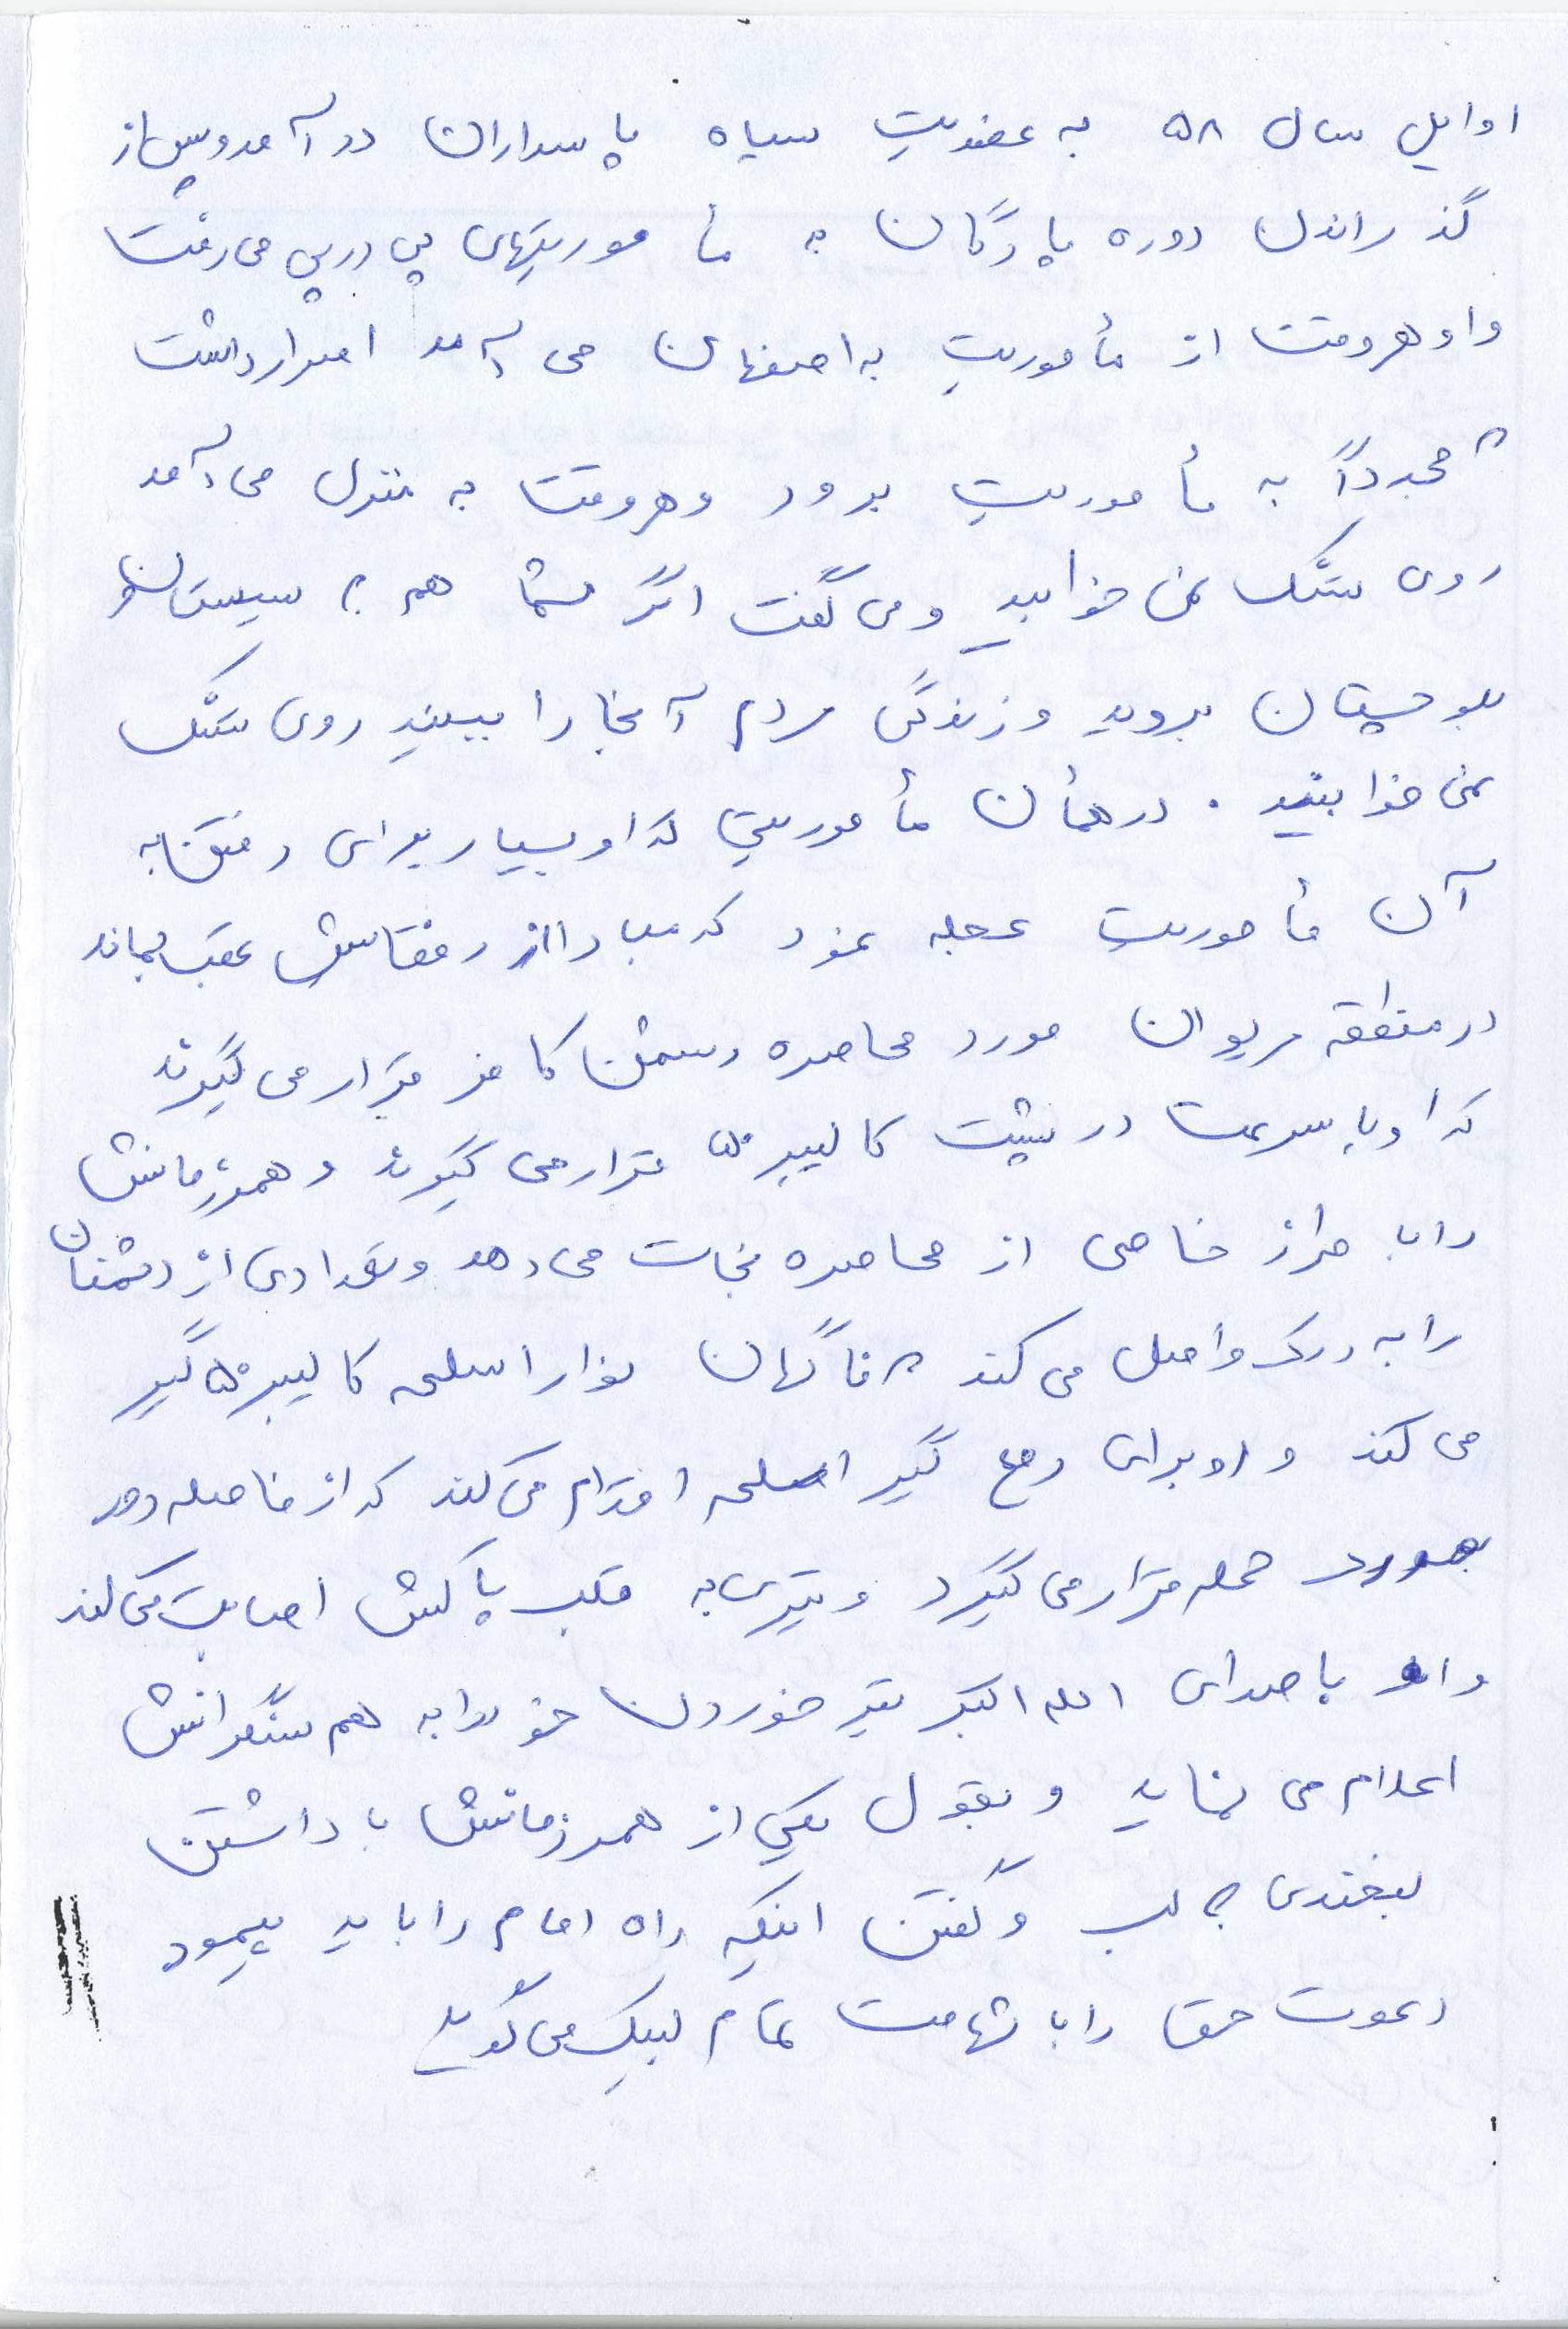 اوایل سال ۵۸ به عضویت سپاه پاسداران درآمد و پس از
گذراندن دوره پادگان به مأموریتهای پی در پی می رفت
و او هر وقت از مأموریت به اصفهان می آمد اصرار داشت
مجدداً به مأموریت برود و هر وقت به منزل می آمد
روی تشک نمی خوابید و می گفت اگر شما هم به سیستان و
بلوچستان بروید و زندگی مردم آنجا را ببینید روی تشک
نمی خوابید . در همان مأموریتی که او بسیار برای رفتن به
آن مأموریت عجله نمود که مبادا از رفقایش عقب بماند
در منطقه مریوان مورد محاصره دشمن کافر قرار می گیرند
که او با سرعت در پشت کالیبر ۵۰ قرار می گیرد و همرزمانش
را با طرز خاصی از محاصره نجات می دهد و تعدادی از دشمنان
را به درک واصل می کند ناگهان نوار اسلحه کالیبر ۵۰ گیر
می کند و او برای رفع گیر اسلحه اقدام می کند که از فاصله دور
مورد حمله قرار می گیرد و تیری به قلب پاکش اصابت می کند
و او با صدای الله اکبر تیر خوردن خود را به هم سنگرانش
اعلام می نماید و بقول یکی از همرزمانش با داشتن
لبخندی به لب و گفتن اینکه راه امام را باید پیمود
دعوت حق را با شهامت تمام لبیک می گوید